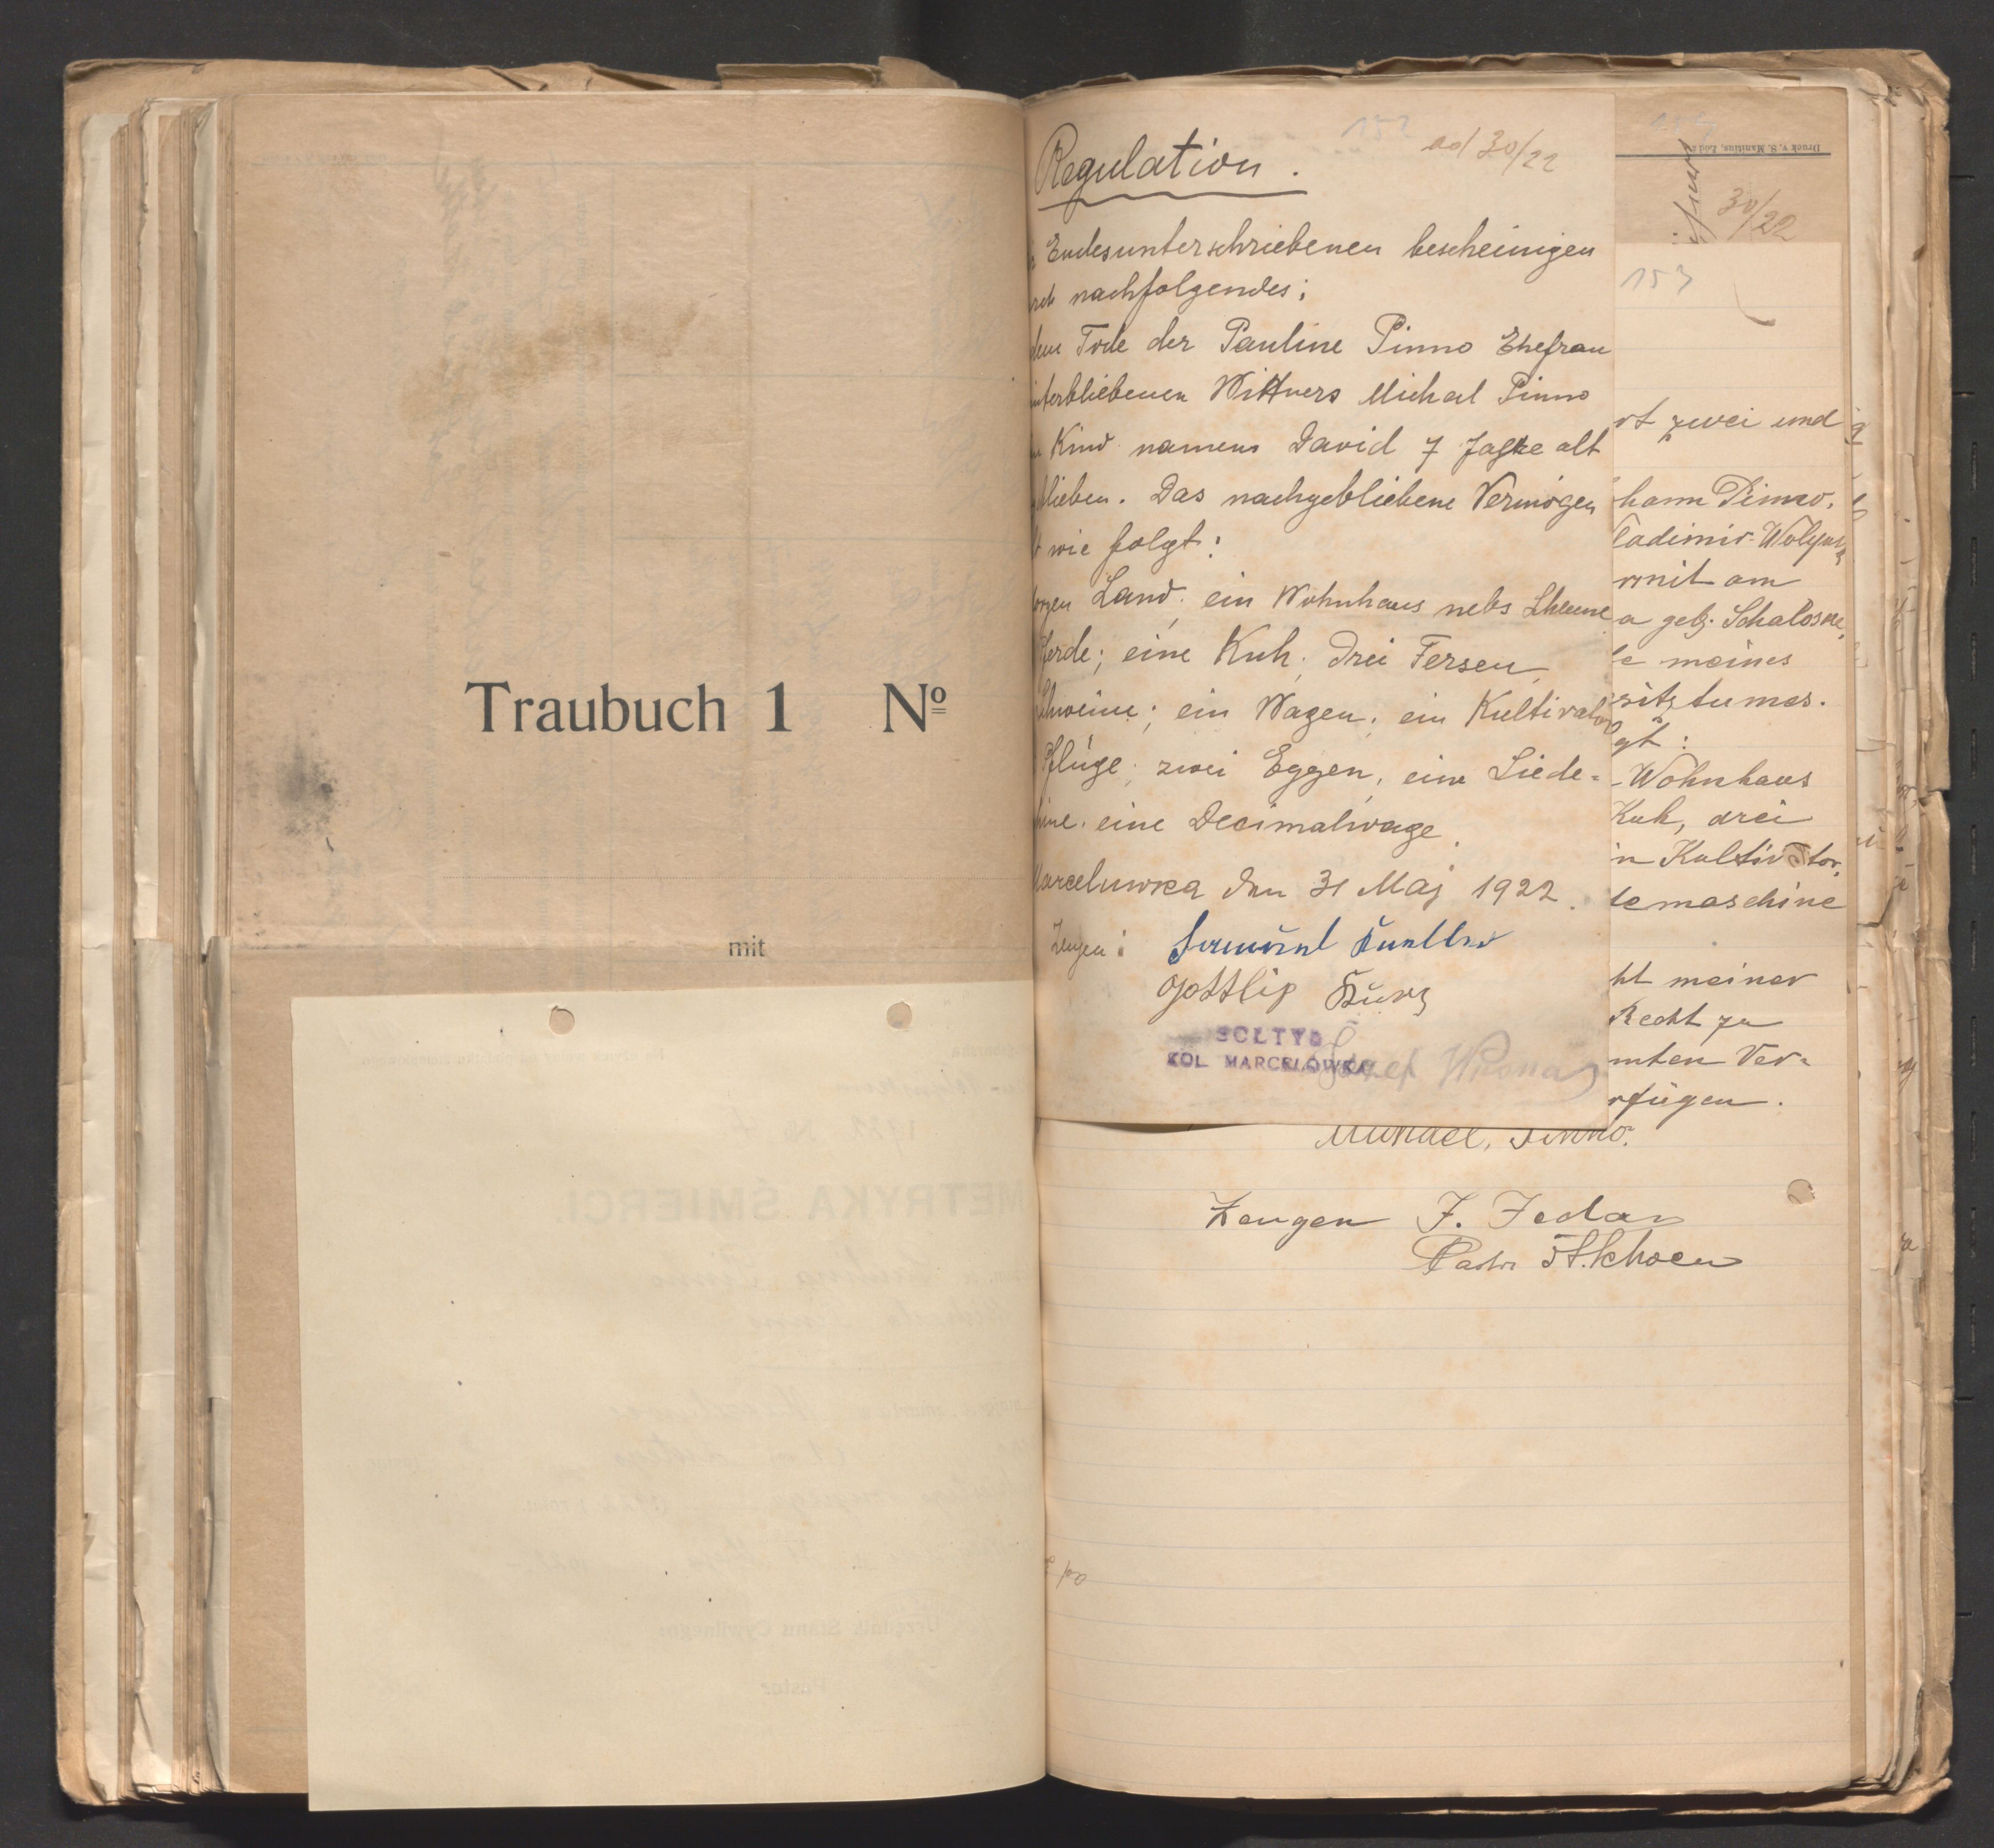 Traubuch 1 Nº
mit
METRYKA ŚMIERCI
Urzędnik Stanu Cywilnego:
Pastor
Regulation.
153 ad 30/22
Endesunterschriebenen bescheinigen
nachfolgendes;
Tode der Pauline Pinno Ehefrau
interbliebenen Wittwers Michael Pinno
Kind namens David 7 Jahre alt
blieben. Das nachgebliebene Vermögen
wie folgt:
Land; ein Wohnhaus nebs Sheune
ferde; eine Kuh; drei Fersen,
Schweine; ein Wagen; ein Kultivator
Pflüge; zwei Eggen, eine Siede-
hine. eine Decimalwage.
Marceluwka den 31 Maj 1922.
Zeugen:
Gottlip Kurz
SOŁTYS
KOL MARCELÓWKA
Druck v. S. Manitius, Łódź
30/22
153
rt zwei und
hann Pinno.
ladimir-Wolynsk
rmit am
a geb. Schaloske,
e meines
sitztumes.
gt:
-Wohnhaus
Kuh, drei
in Kultivator,
demaschine
ht meiner
Recht zu
mten Ver-
rfügen.
Michael, Pinno.
Zeugen J. Jedan
Pastor Schoen